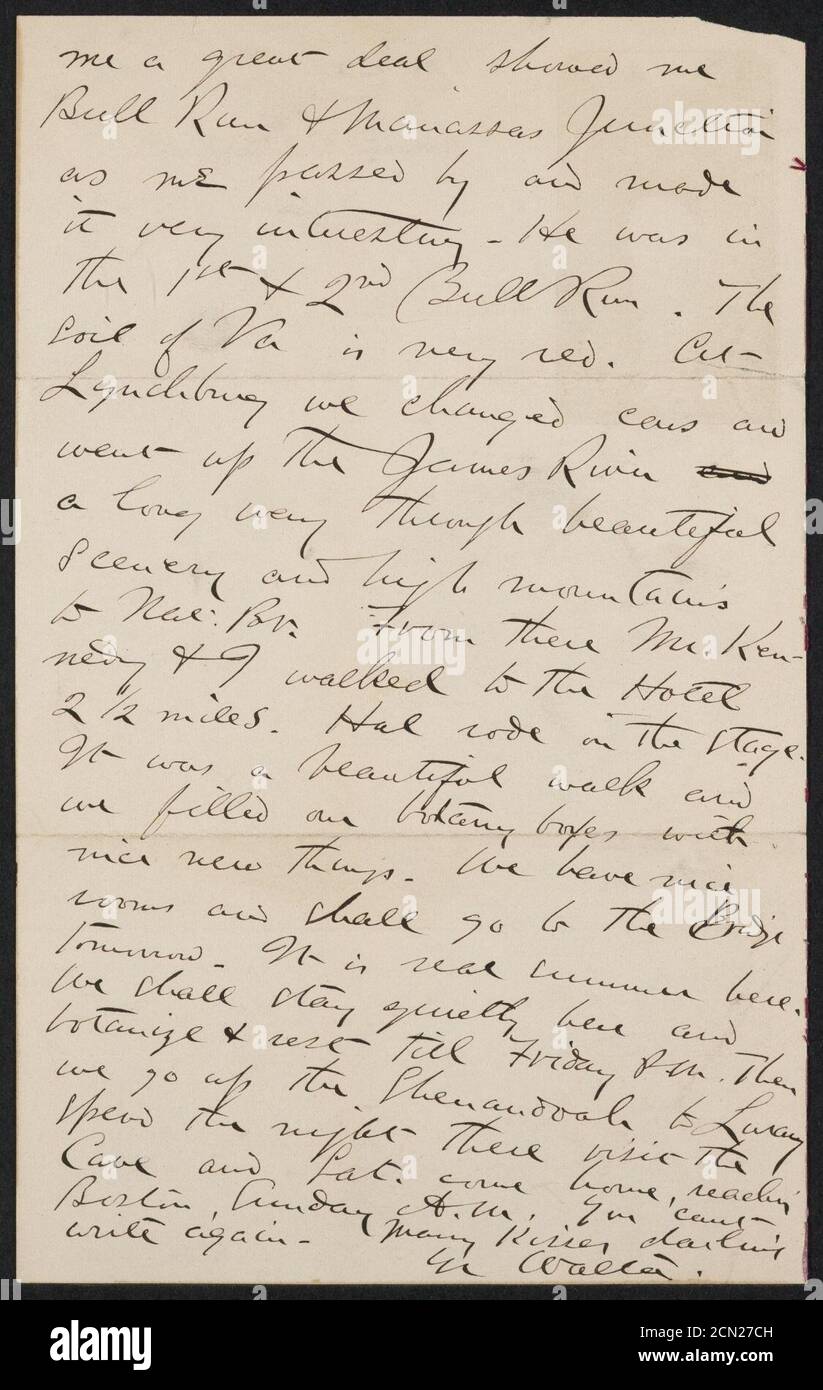 me a great deal showed me
Bull Run & Manassas Junction
as we passed by and made
it very interesting - He was in
the 1st & 2nd Bull Run. The
soil of Va is very red. At
Lynchburg we changed cars and
went up the James River
a long way through beautiful
scenery and high mountains
to Nat. Br. From there Mr. Ken-
nedy & I walked to the Hotel
2 1/2 miles. Hal rode on the stage.
It was a beautiful walk and
we filled our botany boxes with
nice new things. We have nice
rooms and shall go to the Bridge
tomorrow. It is real summer here.
We shall stay quietly here and
botanize & rest till Friday P.M. Then
we go up the Shenandoah to Luray
spend the night there visit the
Cave and Sat. come home, reaching
Boston, Sunday A.M. You can't
write again - Many kisses darling
Yr Walter.
alamy
Image ID: 2CN27CH
www.alamy.com